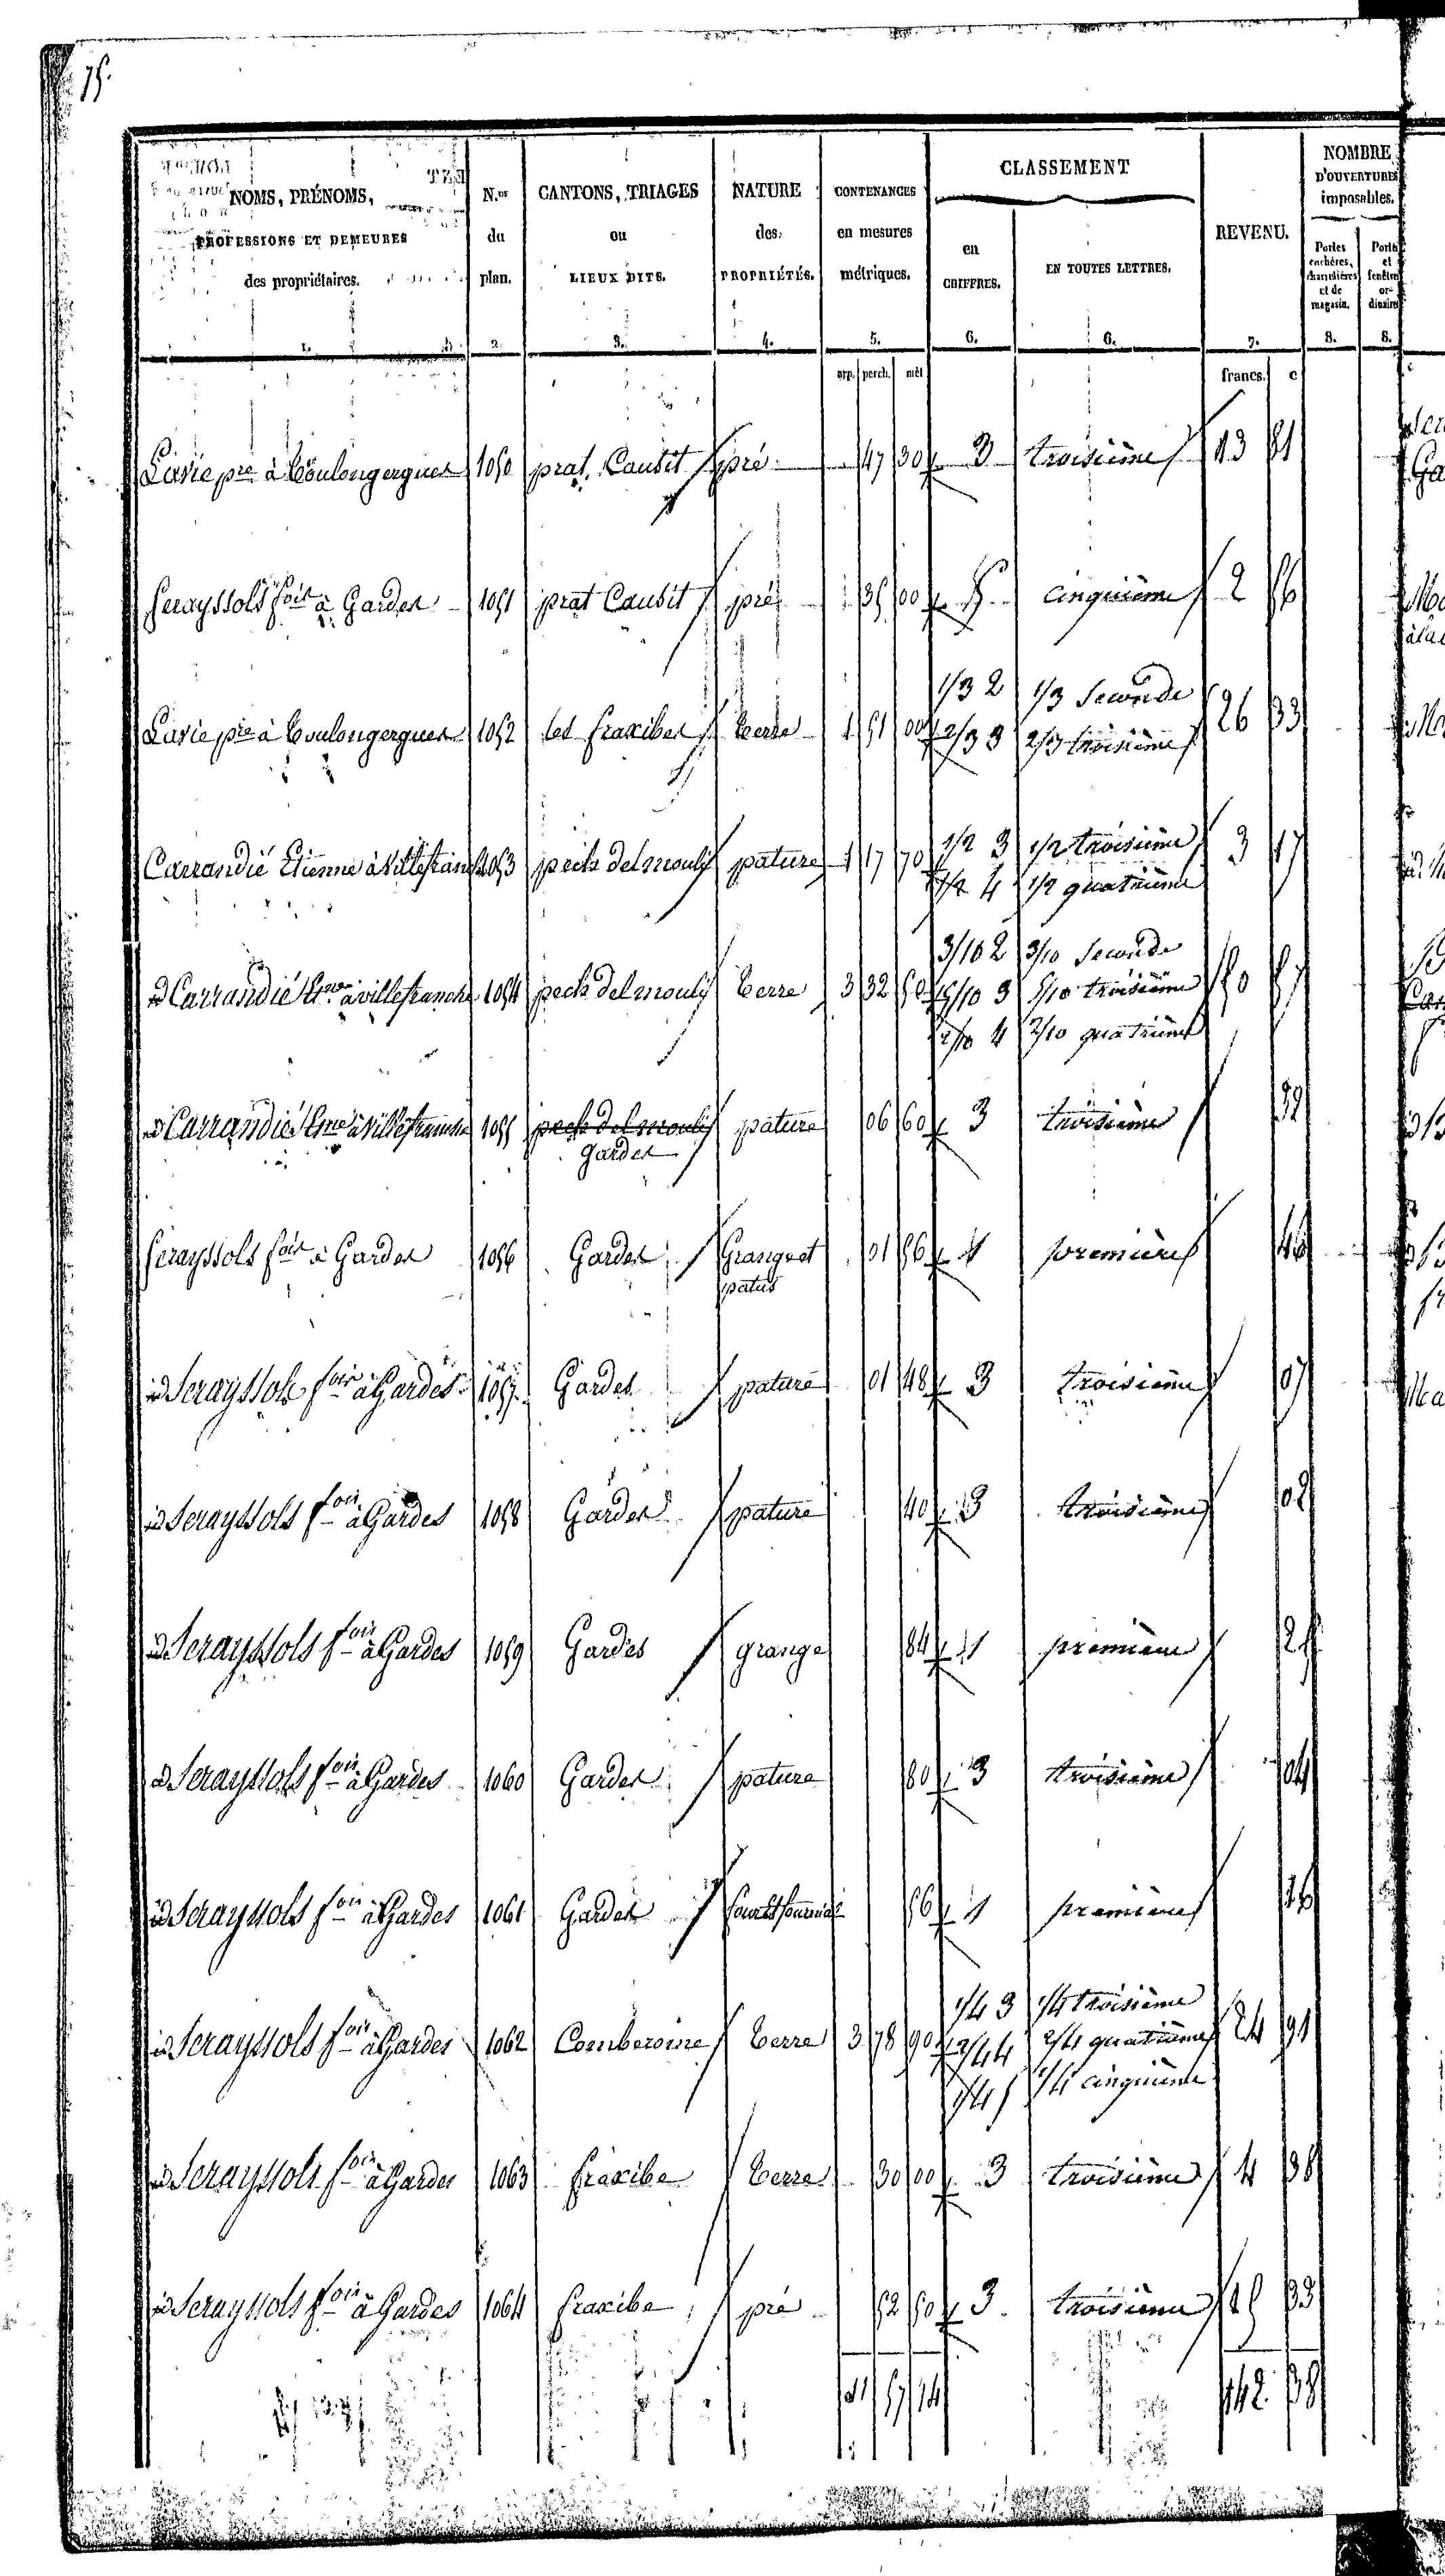 75.
NOMS, PRÉNOMS,
PROFESSIONS ET DEMEURES
des propriétaires.
1.
N.os
du
plan.
2.
CANTONS, TRIAGES
ou
LIEUX DITS.
3.
NATURE
des
PROPRIÉTÉS.
4.
CONTENANCES
en mesures
métriques.
5.
CLASSEMENT
en
CHIFFRES.
6.
EN TOUTES LETTRES.
6.
REVENU.
7.
NOMBRE
D'OUVERTURES
imposables.
Portes
cochères,
charretières
et de
magasin.
8.
Portes
et
fenêtres
or-
dinaires
8.
arp. perch. mèt francs. c
pre à Coulongergues 1050 prat Caubit pré 47 30 3 troisième 13 81
Serayssols fois à Gardes 1051 prat Caubit pré 35 00 5. cinquième 2 56
1/3 2 1/3 Seconde
pre à Coulongergues 1052 les fraxibes terre 1 51 00 2/3 3 2/3 troisième 26 33
1/2 3 1/2 troisième
Carrandié Etienne à Villefranche 1053 pech delmouly pature 1 17 70 1/2 4 1/2 quatrième 3 17
3/10 2 3/10 Seconde
id Carrandié Ene à villefranche 1054 pech delmouly terre 3 32 50 5/10 3 5/10 troisième 50 57
2/10 4 2/10 quatrième
id Carrandié Ene à Villefranche 1055 pech delmouly pature 06 60 3 troisième 32
Gardes
Serayssols fois à Gardes 1056 Gardes Grange et 01 56 1 première 46
patus
id Serayssols fois à Gardes 1057 Gardes pature 01 48 3 troisième 07
id Serayssols fois à Gardes 1058 Gardes pature 40 3 troisième 02
id Serayssols fois à Gardes 1059 Gardes grange 84 1 première 25
id Serayssols fois à Gardes 1060 Gardes pature 80 3 troisième 04
id Serayssols fois à Gardes 1061 Gardes 56 1 première 16
1/4 3 1/4 troisième
id Serayssols fois à Gardes 1062 terre 3 78 90 2/4 4 2/4 quatrième 24 91
1/4 5 1/4 cinquième
id Serayssols fois à Gardes 1063 fraxibe terre 30 00 3 troisième 4 38
id Serayssols fois à Gardes 1064 fraxibe pré 52 50 3. troisième 15 33
11 57 14 142 38